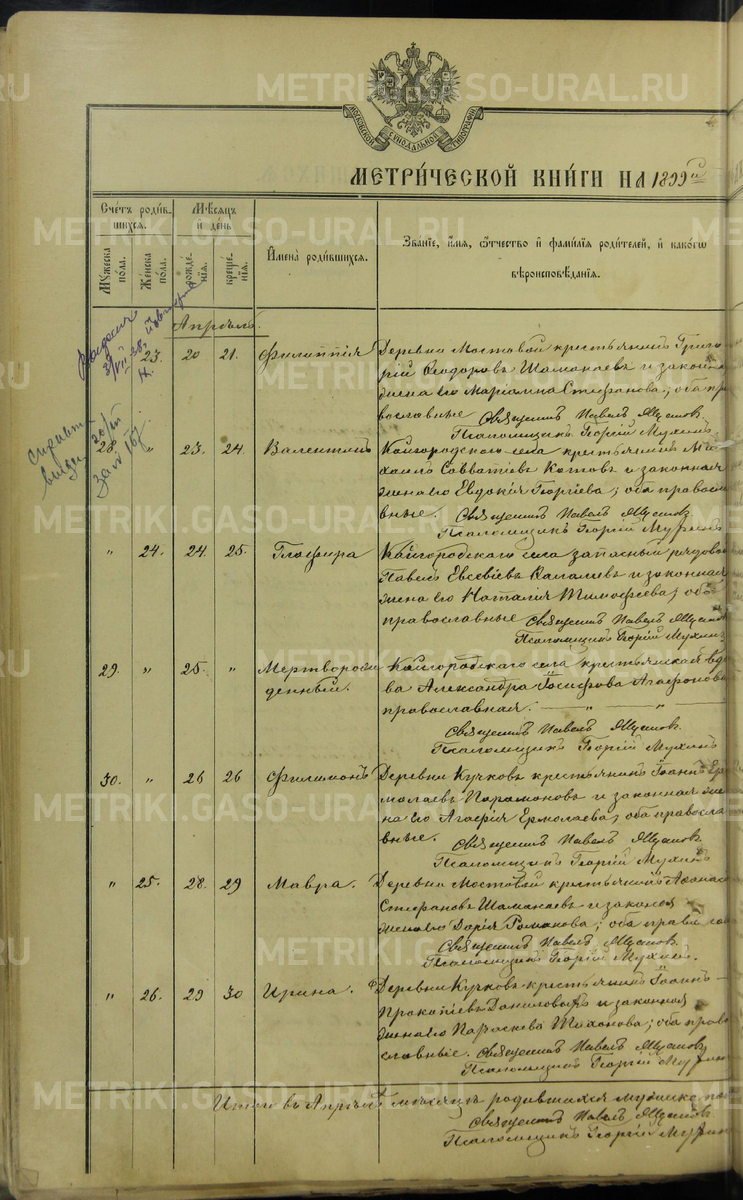 МОСКОВСКОЙ СУНОДАЛЬНОЙ ТИПОГРАФІИ
МЕТРИ́ЧЕСКОЙ КНИ́ГИ НА 1899й
Сче́тъ роди́в-
шихся.
Мѣ́сяцъ
и҆ де́нь
Му́жеска
по́ла.
Же́нска
по́ла.
рожде́-
нїя.
креще́-
нїя.
И҆мена̀ роди́вшихся.
Зва́нїе, и҆́мя, ѻ҆́тчество и҆ фами́лїя роди́телей, и҆ како́гѡ
вѣроисповѣ́данїя.
Апрѣль.
23. 20 21. Филиппія Деревни Мостовой крестьянинъ Григо-
рій Ѳеодоровъ Шаманаевъ и законная
жена его Маріамна Стефанова; оба пра
вославные Священникъ Павелъ
Псаломщикъ Георгій Мухинъ
28. „ 23. 24. Валентинъ Кайгородскаго села крестьянинъ Ми-
хаилъ Савватіевъ Котовъ и законная
жена его Евдокія Георгіева; оба правосла
вные. Священникъ Павелъ
Псаломщикъ Георгій Мухинъ
„ 24. 24. 25. Глафира Кайгородскаго села запасный рядовой
Павелъ Евсевіевъ и законная
жена его Наталія Тимофеева; оба
православные Священникъ Павелъ
Псаломщикъ Георгій Мухинъ
29. „ 25 „ Мертворож- Кайгородскаго села крестьянская вдо
денный. ва Александра Іосифова Агафонова
православная. — „ — „ —
Священникъ Павелъ
Псаломщикъ Георгій Мухинъ
30. „ 26 26 Филимонъ Деревни Кучковъ крестьянинъ Іоаннъ Ер
молаевъ Парамоновъ и законная же
на его Агафія Ермолаева; оба правосла
вные. Священникъ Павелъ
Псаломщикъ Георгій Мухинъ
„ 25. 28. 29 Мавра. Деревни Мостовой крестьянинъ Аѳанас
Стефановъ Шаманаевъ и законая
жена его Дарія Романова; оба правосла
Священникъ Павелъ
Псаломщикъ Георгій Мухинъ.
„ 26. 29 30 Ирина. Деревни Кучковъ крестьянинъ Іоаннъ
Прокопіевъ Даниловъ и законная
жена его Параскева Тихонова; оба право
славные. Священникъ Павелъ
Псаломщикъ Георгій Мухинъ
Итого въ Апрѣлѣ мѣсяцѣ родившихся мужеска пол
Священникъ Павелъ
Псаломщикъ Георгій Мухинъ
METRIKI.GASO-URAL.RU